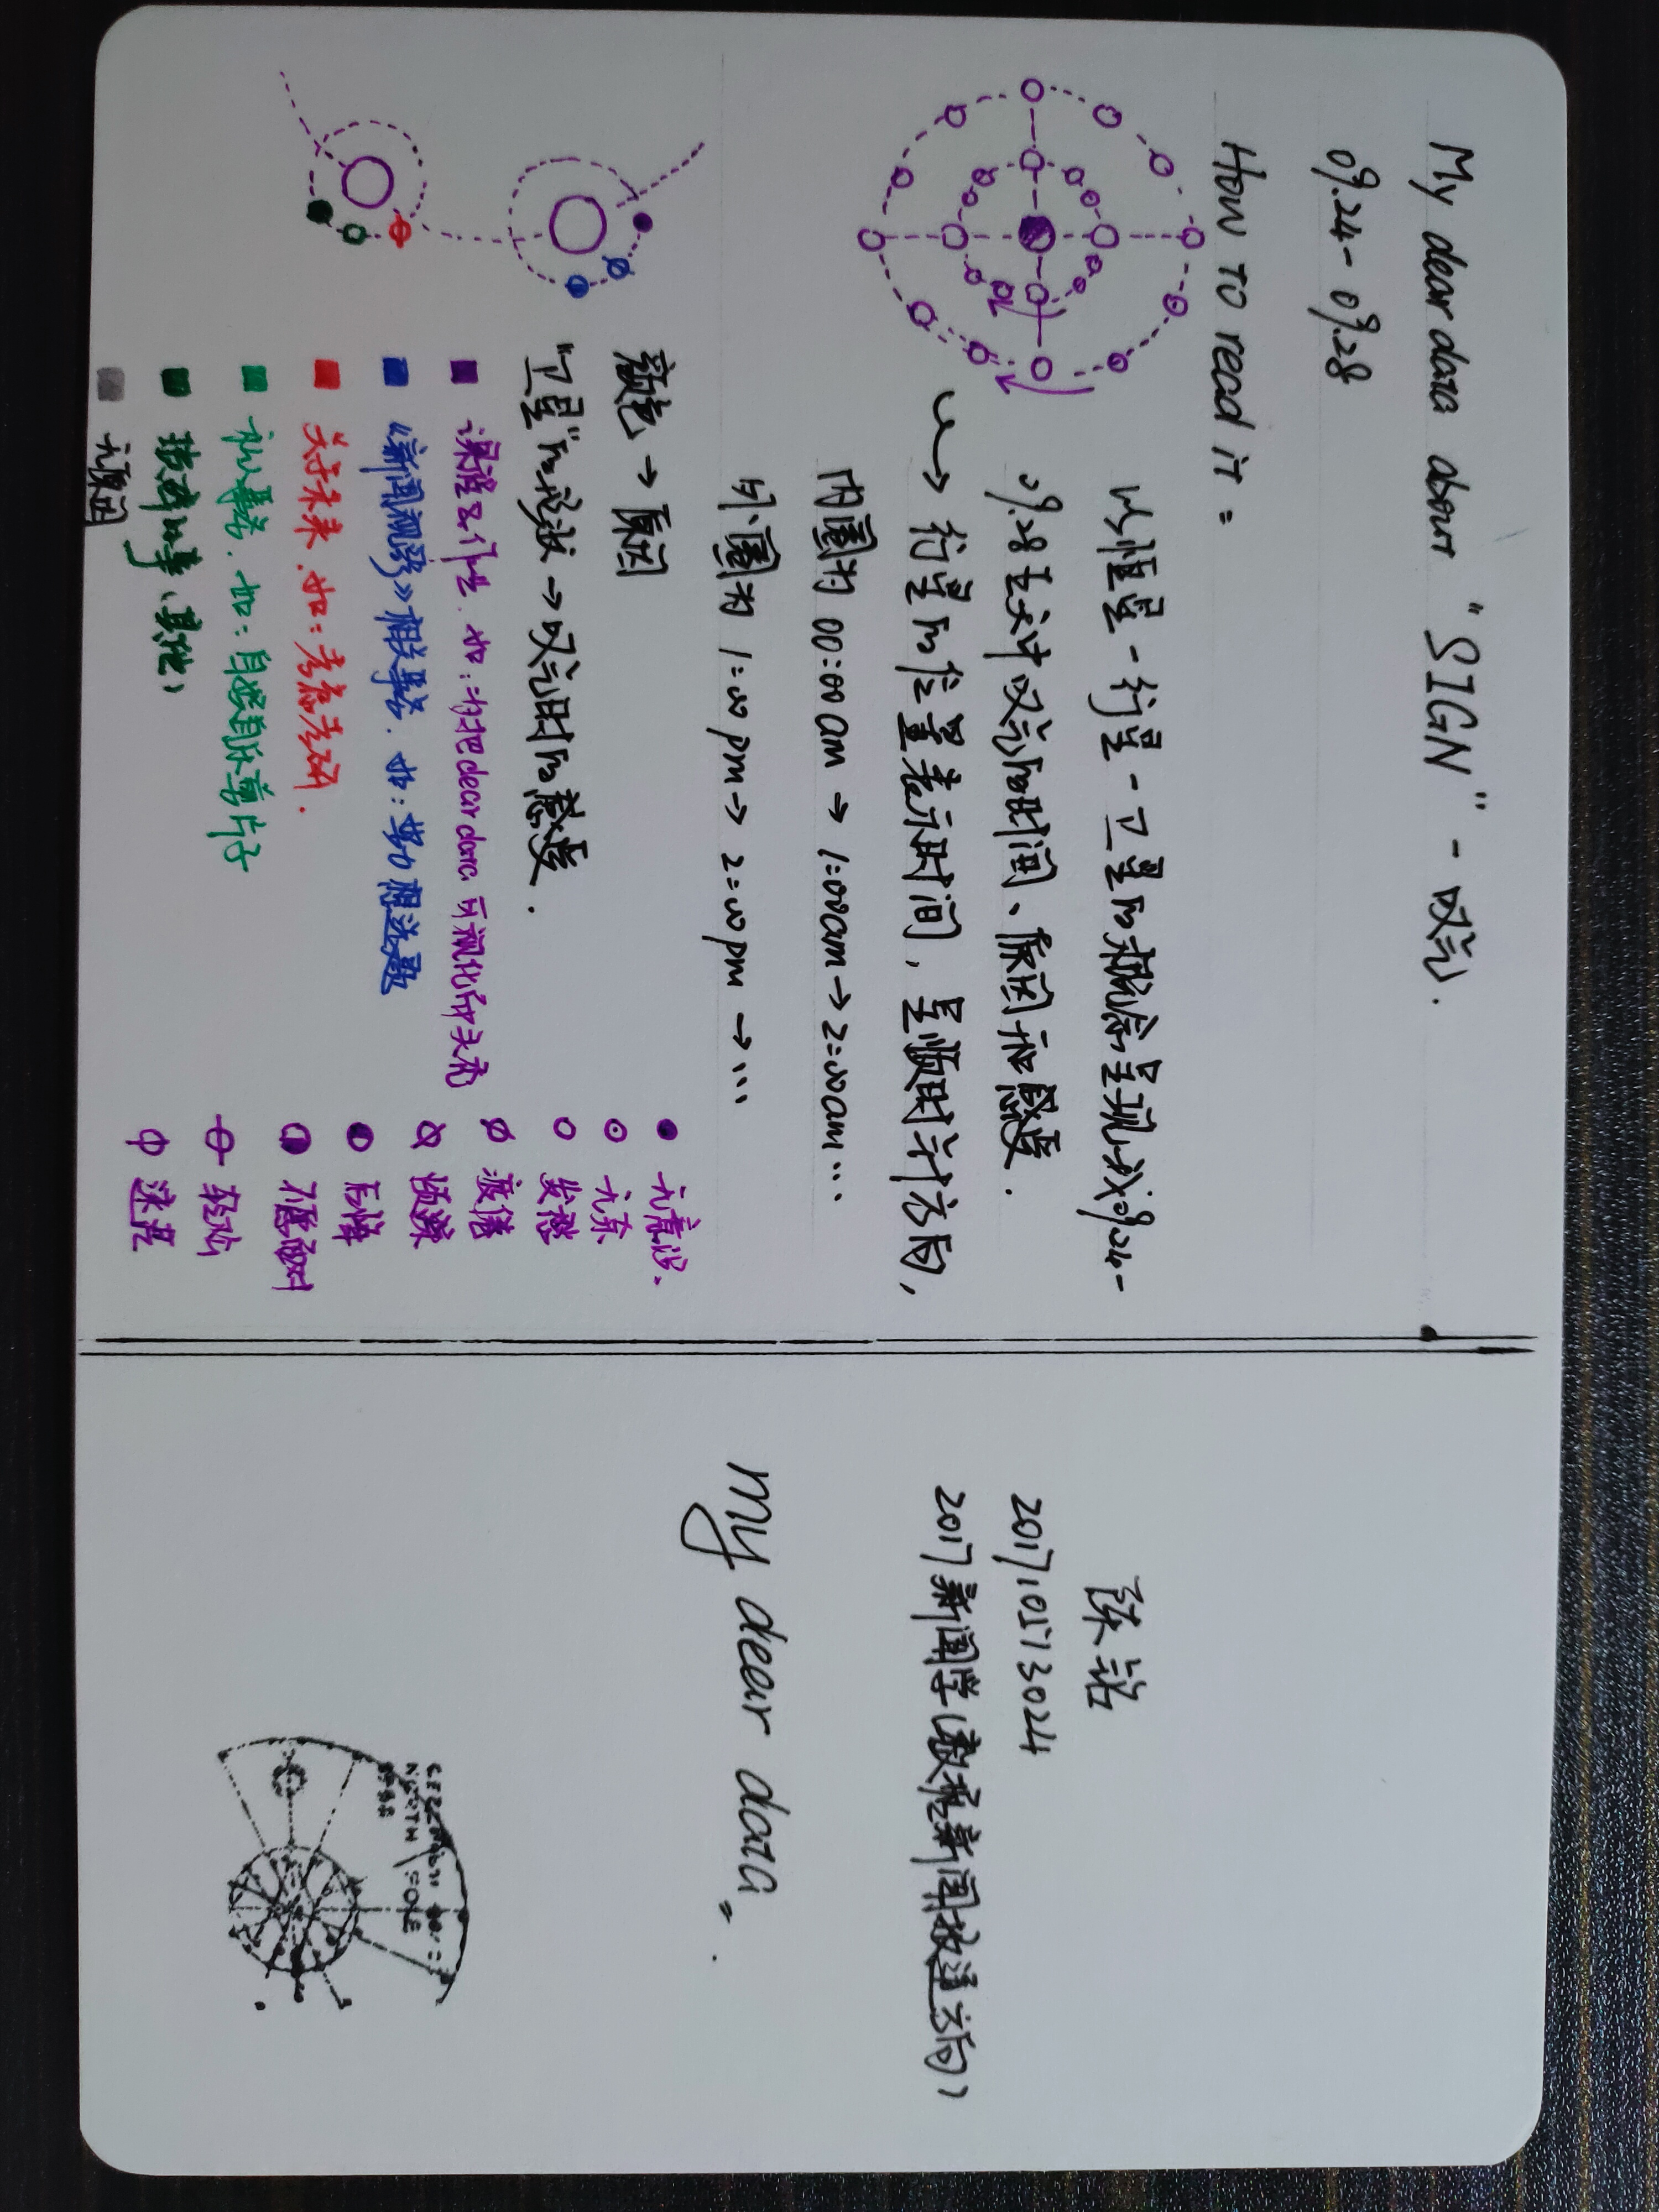 My dear data about "SIGN" - 叹气.
09.24- 09.28
How to read it :
以恒星-行星-卫星的概念呈现我09.24-
09.28五天中叹气的时间、原因和感受.
行星的位置表示时间, 呈顺时针方向,
内圈为 00:00am → 1:00am → 2:00am ...
外圈为 1:00pm → 2:00pm → ...
颜色 → 原因
"卫星"的形状 → 叹气时的感受.
课程及作业. 如: 为把dear data 可视化而头秃
《新闻视野》相关事务. 如: 努力想选题
关于未来. 如: 考虑考研.
私人事务. 如: 自娱自乐剪片子
琐碎的事(其他)
无原因
无意识.
无奈
发愁
疲倦
烦躁
后悔
不愿面对
轻松
迷茫
陈铭
201710513024
2017新闻学(数据新闻报道方向)
my dear data.
NORTH POLE